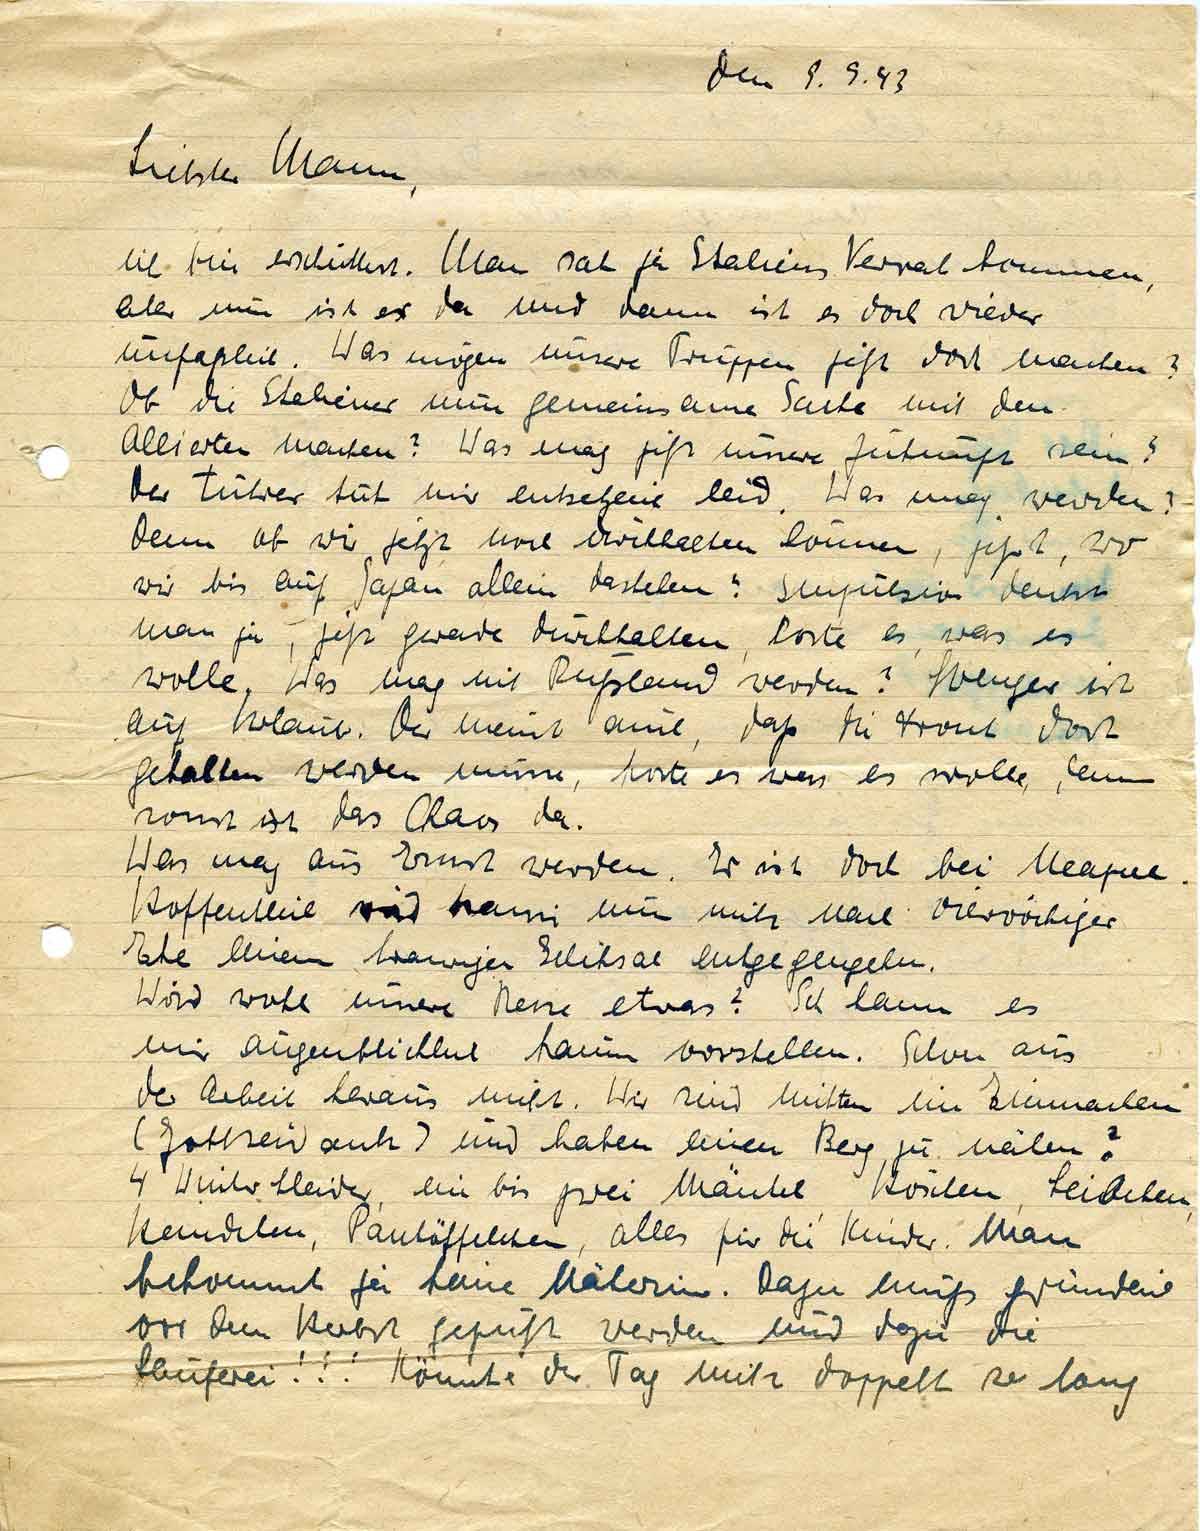 den 9. 9. 43
Liebster Mann,
ich bin erschüttert. Man sah ja Italiens Verrat kommen,
aber nun ist er da und dann ist es doch wieder
unfaßlich. Was mögen unsere Truppen jetzt dort machen?
Ob die Italiener nun gemeinsame Sache mit den
Alliierten machen? Was mag jetzt unsere Zukunft sein?
Der Führer tut mir entsetzlich leid. Was mag werden?
Denn ob wir jetzt noch durchhalten können, jetzt, wo
wir bis auf Japan allein dastehen? Impulsiv denkt
man ja, jetzt gerade durchhalten, koste es, was es
wolle. Was mag mit Rußland werden? ist
auf Urlaub. Der meint auch, daß die Front dort
gehalten werden müsse, koste es was es wolle, denn
sonst ist das Chaos da.
Was mag aus Ernst werden. Er ist doch bei Neapel.
Hoffentlich wird Hanni nun nicht nach vierwöchiger
Ehe einem traurigen Schicksal entgegengehen.
Wird wohl unsere Reise etwas? Ich kann es
mir augenblicklich kaum vorstellen. Schon aus
der Arbeit heraus nicht. Wir sind mitten im Einmachen
(Gottseidank) und haben einen Berg zu nähen?
4 Winterkleider, ein bis zwei Mäntel, Höschen, Leibchen,
Hemdchen, Pantöffelchen, alles für die Kinder. Man
bekommt ja keine Näherin. Dazu muß gründlich
vor dem Herbst geputzt werden und dazu die
Lauferei!!! Könnte der Tag nicht doppelt so lang